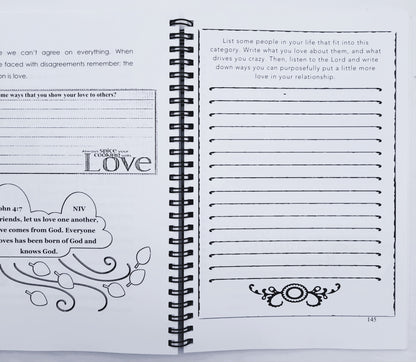 e we can't agree on everything. When
e faced with disagreements remember; the
on is love.
me ways that you show your love to others?
Always spice your
cooking with
Love
ohn 4:7 NIV
riends, let us love one another,
ve comes from God. Everyone
oves has been born of God and
knows God.
List some people in your life that fit into this
category. Write what you love about them, and what
drives you crazy. Then, listen to the Lord and write
down ways you can purposefully put a little more
love in your relationship.
145